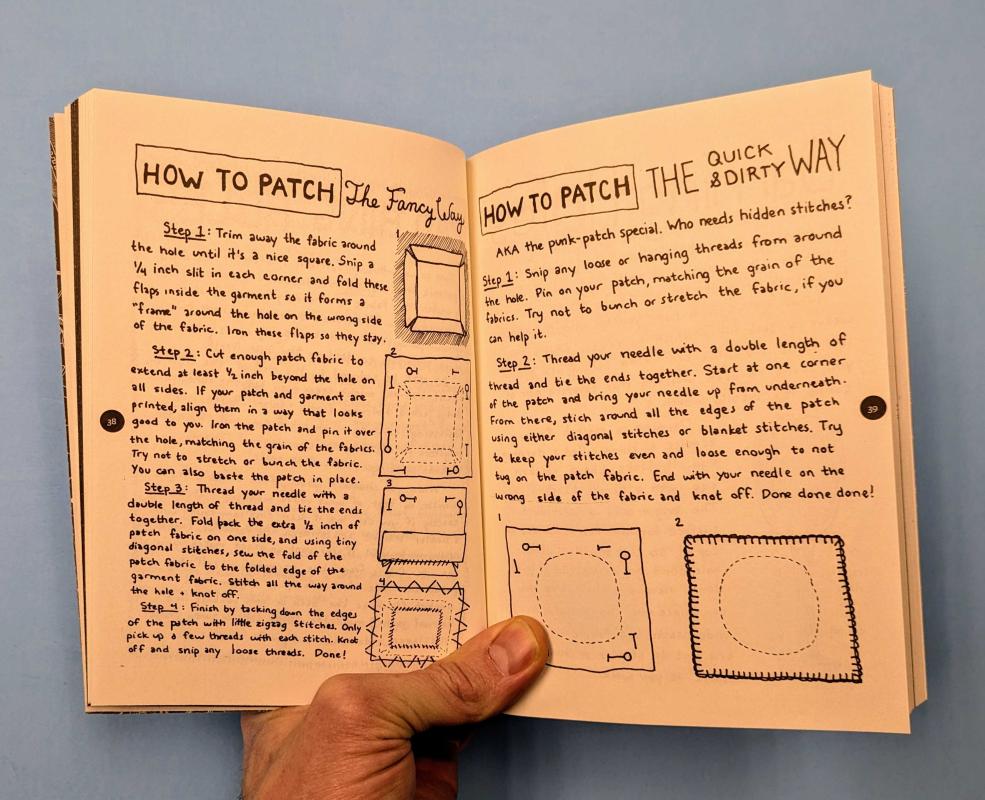 HOW TO PATCH The Fancy Way
Step 1: Trim away the fabric around
the hole until it's a nice square. Snip a
1/4 inch slit in each corner and fold these
flaps inside the garment so it forms a
"frame" around the hole on the wrong side
of the fabric. Iron these flaps so they stay.
Step 2: Cut enough patch fabric to
extend at least 1/2 inch beyond the hole on
all sides. If your patch and garment are
printed, align them in a way that looks
good to you. Iron the patch and pin it over
the hole, matching the grain of the fabrics.
Try not to stretch or bunch the fabric.
You can also baste the patch in place.
Step 3: Thread your needle with a
double length of thread and tie the ends
together. Fold back the extra 1/2 inch of
patch fabric on one side, and using tiny
diagonal stitches, sew the fold of the
patch fabric to the folded edge of the
garment fabric. Stitch all the way around
the hole + knot off.
Step 4: Finish by tacking down the edges
of the patch with little zigzag stitches. Only
pick up a few threads with each stitch. Knot
off and snip any loose threads. Done!
1
2
3
4
38
HOW TO PATCH THE QUICK & DIRTY WAY
AKA the punk-patch special. Who needs hidden stitches?
Step 1: Snip any loose or hanging threads from around
the hole. Pin on your patch, matching the grain of the
fabrics. Try not to bunch or stretch the fabric, if you
can help it.
Step 2: Thread your needle with a double length of
thread and tie the ends together. Start at one corner
of the patch and bring your needle up from underneath.
From there, stich around all the edges of the patch
using either diagonal stitches or blanket stitches. Try
to keep your stitches even and loose enough to not
tug on the patch fabric. End with your needle on the
wrong side of the fabric and knot off. Done done done!
1
2
39